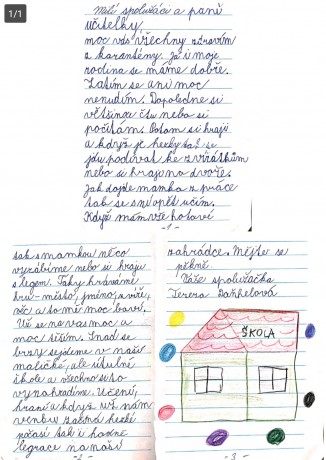 1/1
Milí spolužáci a paní
učitelky,
moc vás všechny zdravím
z karantény. Já i moje
rodina se máme dobře.
Zatím se ani moc
nenudím. Dopoledne si
většinou čtu nebo si
počítám. Potom si hraji
a když je hezky tak se
jdu podívat ke zvířátkům
nebo si hraji na dvoře.
Jak dojde mamka z práce
tak se smí opět učím.
Když máme vše hotové
-1-
tak s mamkou něco
vyrábíme nebo si hraju
s legem. Taky hráváme
hru - město, jméno, zvíře,
věc a to mě moc baví.
Už se na vás moc a
moc těším. Snad se
brzy sejdeme v naší
maličké, ale útulné
škole a všechno si to
vynahradíme. Učení,
hraní a když už nám
venku začíná hezké
počasí tak i hodně
legrace na naší
-2-
zahrádce. Mějte se
pěkně.
Vaše spolužačka
Tereza Daňhelová
ŠKOLA
-3-